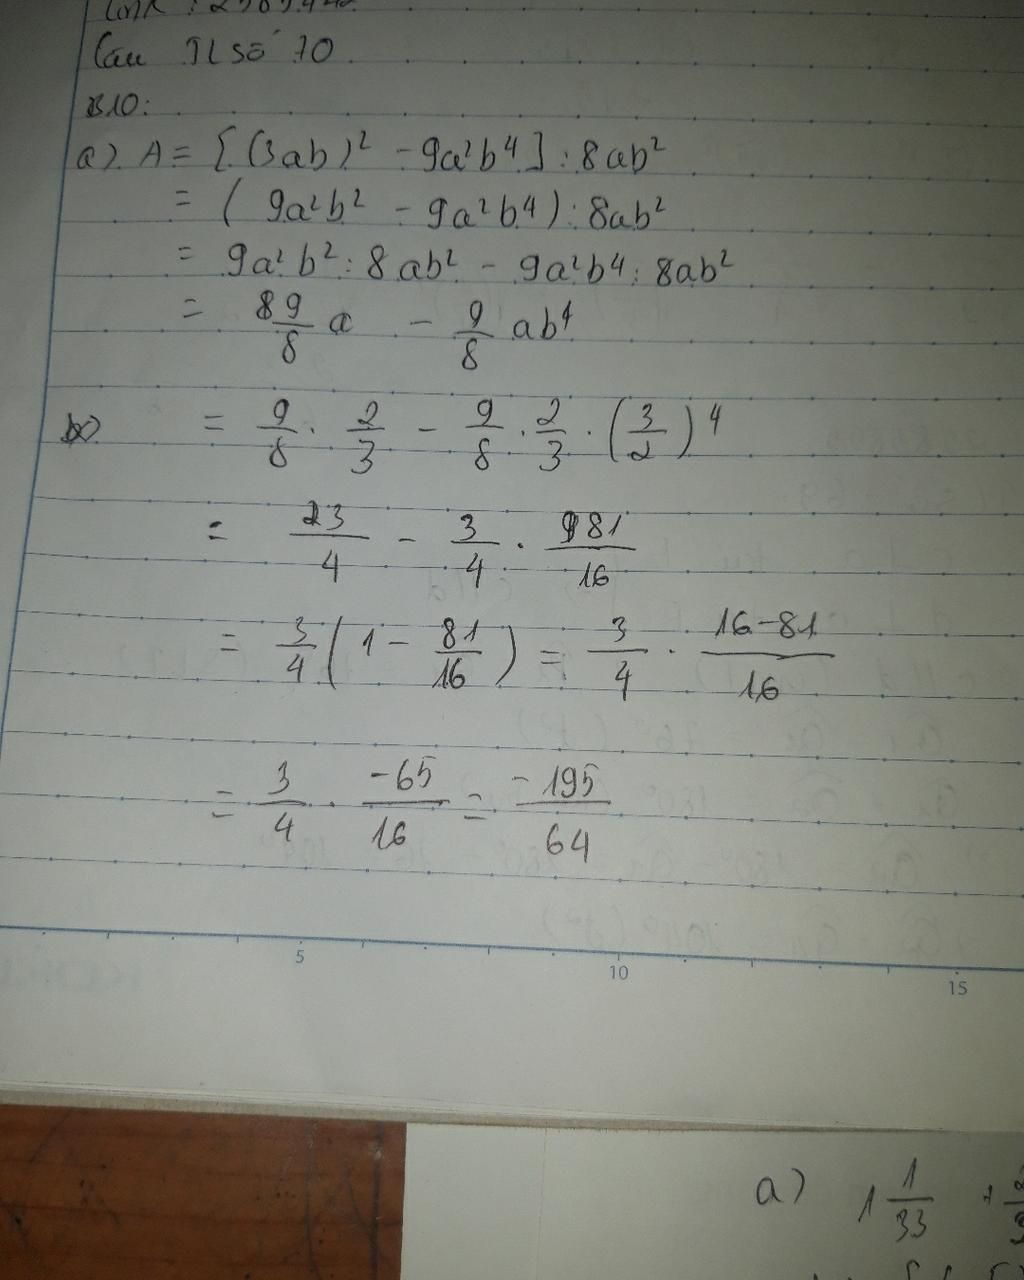 Câu TL số 10
B10:
a) A = [(3ab)² - 9a²b⁴] : 8ab²
= (9a²b² - 9a²b⁴) : 8ab²
= 9a²b² : 8ab² - 9a²b⁴ : 8ab²
= 9/8 a - 9/8 ab⁴
= 9/8 . 2/3 - 9/8 . 2/3 . (3/2)⁴
= 3/4 - 3/4 . 81/16
= 3/4 (1 - 81/16) = 3/4 . 16-81/16
= 3/4 . -65/16 = -195/64
5 10 15
a) 1 1/33 +